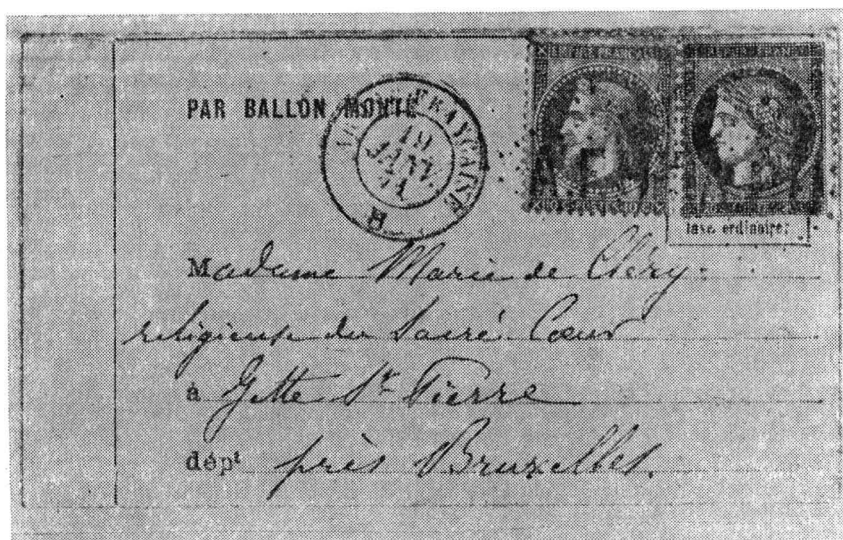 PAR BALLON MONTÉ
FRANÇAISE
19
JANV.
71
H
taxe ordinaire:
Madame Marie de Cléry.
religieuse du Sacré Cœur
à Jette St Pierre
dépt près Bruxelles.